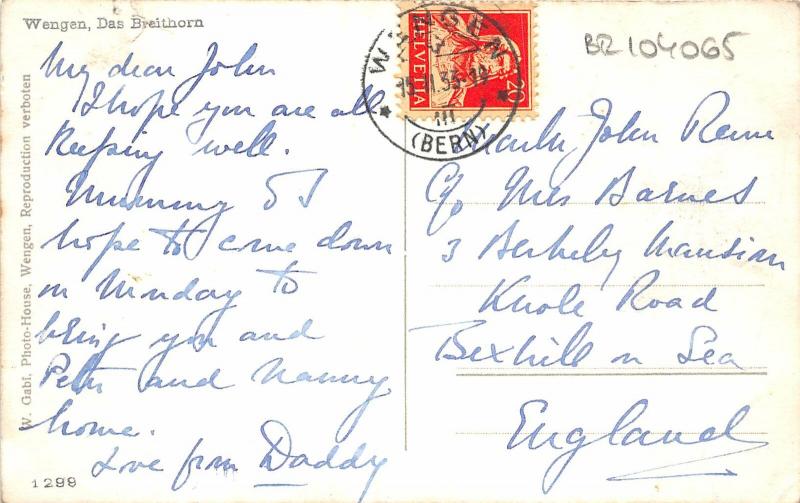 Wengen, Das Breithorn
My dear John
I hope you are all
keeping well.
Mummy & I
hope to come down
on Monday to
bring you and
Peter and Nanny
home.
Love from Daddy
W. Gabi, Photo-House, Wengen, Reproduction verboten
1299
WENGEN
(BERN)
HELVETIA
20
BR104065
John
c/o Mrs Barnes
3 Berkeley Mansion
Knole Road
Bexhill on Sea
England